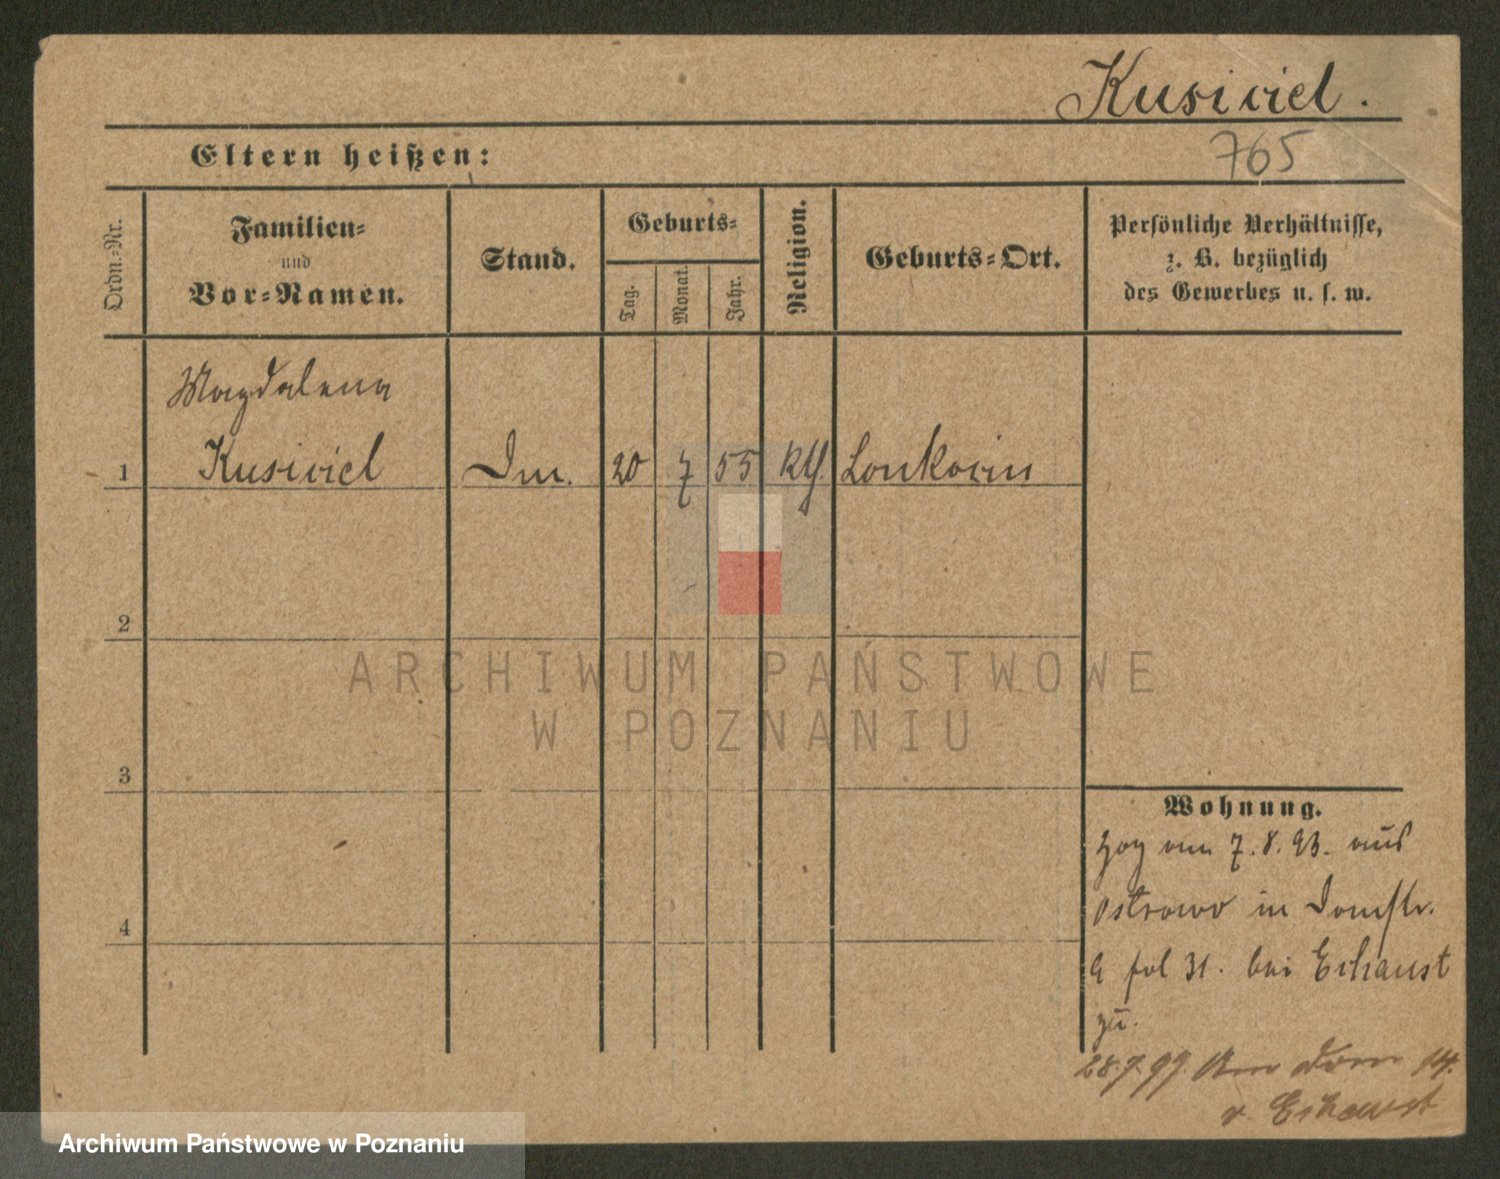 Kusiciel.
765
Eltern heißen:
Ordn.-Nr.
Familien-
und
Vor-Namen.
Stand.
Geburts-
Tag.
Monat.
Jahr.
Religion.
Geburts-Ort.
Persönliche Verhältnisse,
z. B. bezüglich
des Gewerbes u. s. w.
Magdalena
1 Kusiciel 20 7 55 kth.
2
3
4
Wohnung.
Zog am 7. 8. 93. aus
Ostrowo in Domstr.
fol 31. bei Erhaust
zu.
28.7.99. Am Dom 14.
v. Erhaust
ARCHIWUM PAŃSTWOWE
W POZNANIU
Archiwum Państwowe w Poznaniu